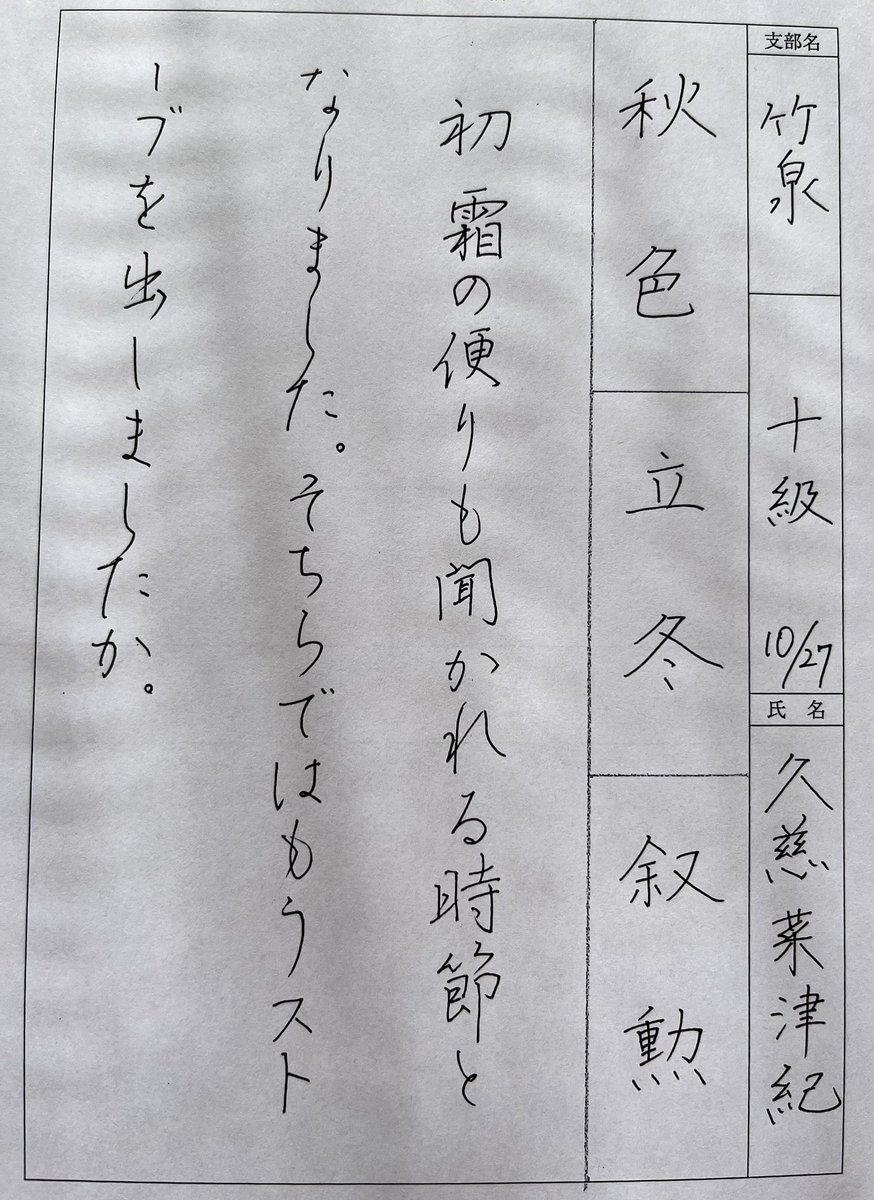 支部名
竹泉
十級 10/27
氏名
久慈菜津紀
秋色
立冬
叙勲
初霜の便りも聞かれる時節と
なりました。そちらではもうスト
ーブを出しましたか。